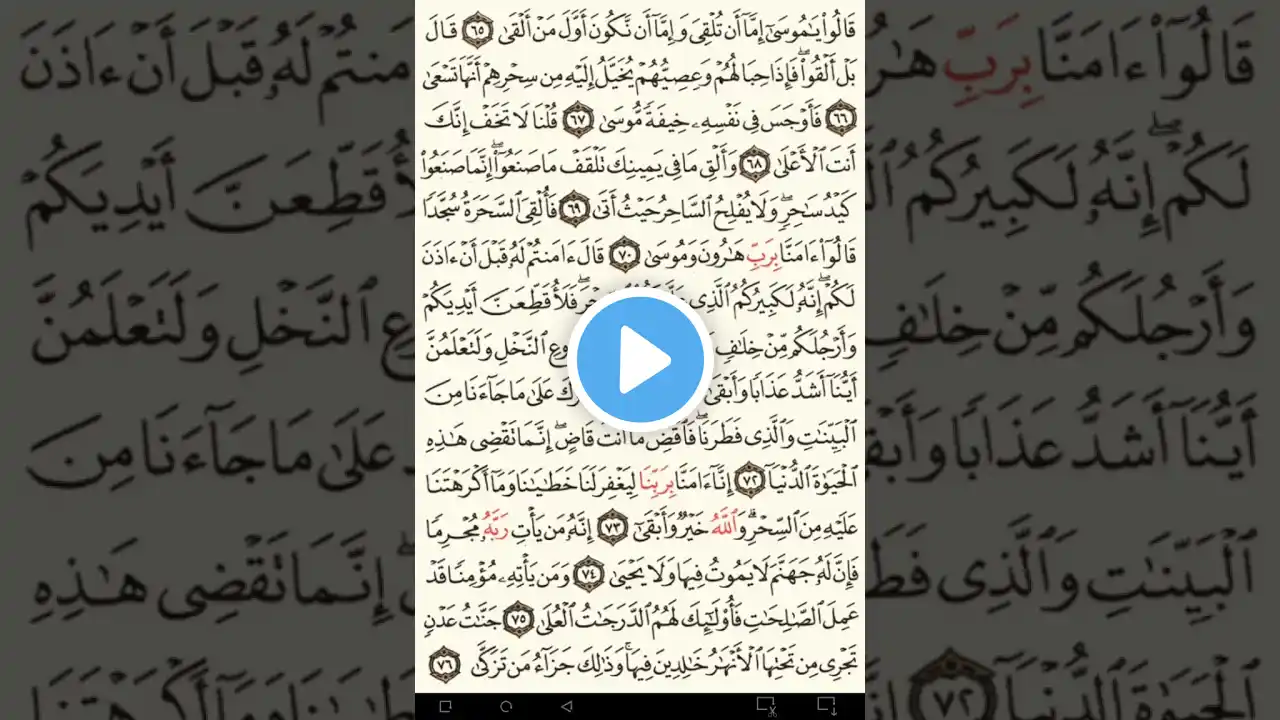 قَالُوا۟ يَـٰمُوسَىٰٓ إِمَّآ أَن تُلْقِىَ وَإِمَّآ أَن نَّكُونَ أَوَّلَ مَنْ أَلْقَىٰ ٦٥ قَالَ
بَلْ أَلْقُوا۟ ۖ فَإِذَا حِبَالُهُمْ وَعِصِيُّهُمْ يُخَيَّلُ إِلَيْهِ مِن سِحْرِهِمْ أَنَّهَا تَسْعَىٰ
٦٦ فَأَوْجَسَ فِى نَفْسِهِۦ خِيفَةً مُّوسَىٰ ٦٧ قُلْنَا لَا تَخَفْ إِنَّكَ
أَنتَ ٱلْأَعْلَىٰ ٦٨ وَأَلْقِ مَا فِى يَمِينِكَ تَلْقَفْ مَا صَنَعُوٓا۟ ۖ إِنَّمَا صَنَعُوا۟
كَيْدُ سَـٰحِرٍ ۖ وَلَا يُفْلِحُ ٱلسَّاحِرُ حَيْثُ أَتَىٰ ٦٩ فَأُلْقِىَ ٱلسَّحَرَةُ سُجَّدًا
قَالُوٓا۟ ءَامَنَّا بِرَبِّ هَـٰرُونَ وَمُوسَىٰ ٧٠ قَالَ ءَامَنتُمْ لَهُۥ قَبْلَ أَنْ ءَاذَنَ
لَكُمْ ۖ إِنَّهُۥ لَكَبِيرُكُمُ ٱلَّذِى فَلَأُقَطِّعَنَّ أَيْدِيَكُمْ
وَأَرْجُلَكُم مِّنْ خِلَـٰفٍ ٱلنَّخْلِ وَلَتَعْلَمُنَّ
أَيُّنَآ أَشَدُّ عَذَابًا وَأَبْقَىٰ عَلَىٰ مَا جَآءَنَا مِنَ
ٱلْبَيِّنَـٰتِ وَٱلَّذِى فَطَرَنَا ۖ فَٱقْضِ مَآ أَنتَ قَاضٍ ۖ إِنَّمَا تَقْضِى هَـٰذِهِ
ٱلْحَيَوٰةَ ٱلدُّنْيَآ ٧٢ إِنَّآ ءَامَنَّا بِرَبِّنَا لِيَغْفِرَ لَنَا خَطَـٰيَـٰنَا وَمَآ أَكْرَهْتَنَا
عَلَيْهِ مِنَ ٱلسِّحْرِ ۗ وَٱللَّهُ خَيْرٌ وَأَبْقَىٰٓ ٧٣ إِنَّهُۥ مَن يَأْتِ رَبَّهُۥ مُجْرِمًا
فَإِنَّ لَهُۥ جَهَنَّمَ لَا يَمُوتُ فِيهَا وَلَا يَحْيَىٰ ٧٤ وَمَن يَأْتِهِۦ مُؤْمِنًا قَدْ
عَمِلَ ٱلصَّـٰلِحَـٰتِ فَأُو۟لَـٰٓئِكَ لَهُمُ ٱلدَّرَجَـٰتُ ٱلْعُلَىٰ ٧٥ جَنَّـٰتُ عَدْنٍ
تَجْرِى مِن تَحْتِهَا ٱلْأَنْهَـٰرُ خَـٰلِدِينَ فِيهَا ۚ وَذَٰلِكَ جَزَآءُ مَن تَزَكَّىٰ ٧٦